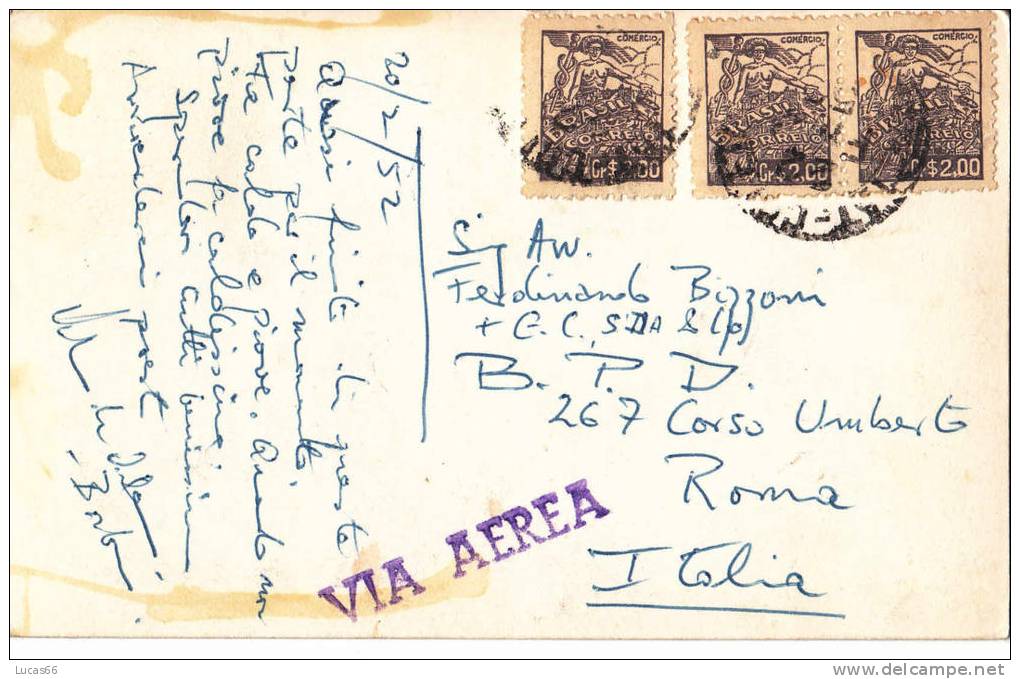 COMERCIO
BRASIL
CORREIO
Cr.$2,00
COMERCIO
BRASIL
CORREIO
Cr.$2,00
COMERCIO
BRASIL
CORREIO
Cr.$2,00
20/2/52
Quasi finito di questa
parte per il momento
Fa caldo e piove. Quando non
piove fa caldissimo
Spero tutti benissimo
Arrivederci presto
Sig Avv.
Ferdinando Bizzoni
B. P. D.
267 Corso Umberto
Roma
Italia
VIA AEREA
Lucas66
http://www.delcampe.net